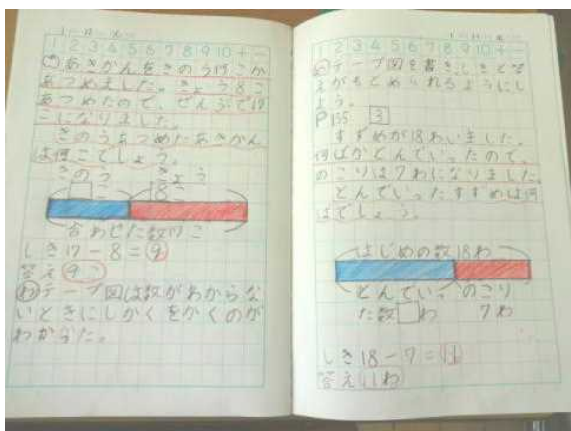 1 2 3 4 5 6 7 8 9 10 + −
あきかんをきのう何こか
あつめました。きょう8こ
あつめたので、ぜんぶで17
こになりました。
きのうあつめたあきかん
は何こでしょう。
きのう きょう
□こ 8こ
合わせた数17こ
しき17−8=9
答え 9こ
わ テープ図は数がわからな
いときにしかくをかくのが
わかった。
1 2 3 4 5 6 7 8 9 10 + −
め テープ図を書き、しきと答
えがもとめられるようにし
よう。
P155 3
すずめが18わいました。
何ばかとんでいったので、
のこりは7わになりました。
とんでいったすずめは何
ばでしょう。
はじめの数18わ
とんでいっ のこり
た数□わ 7わ
しき18−7=11
答え11わ